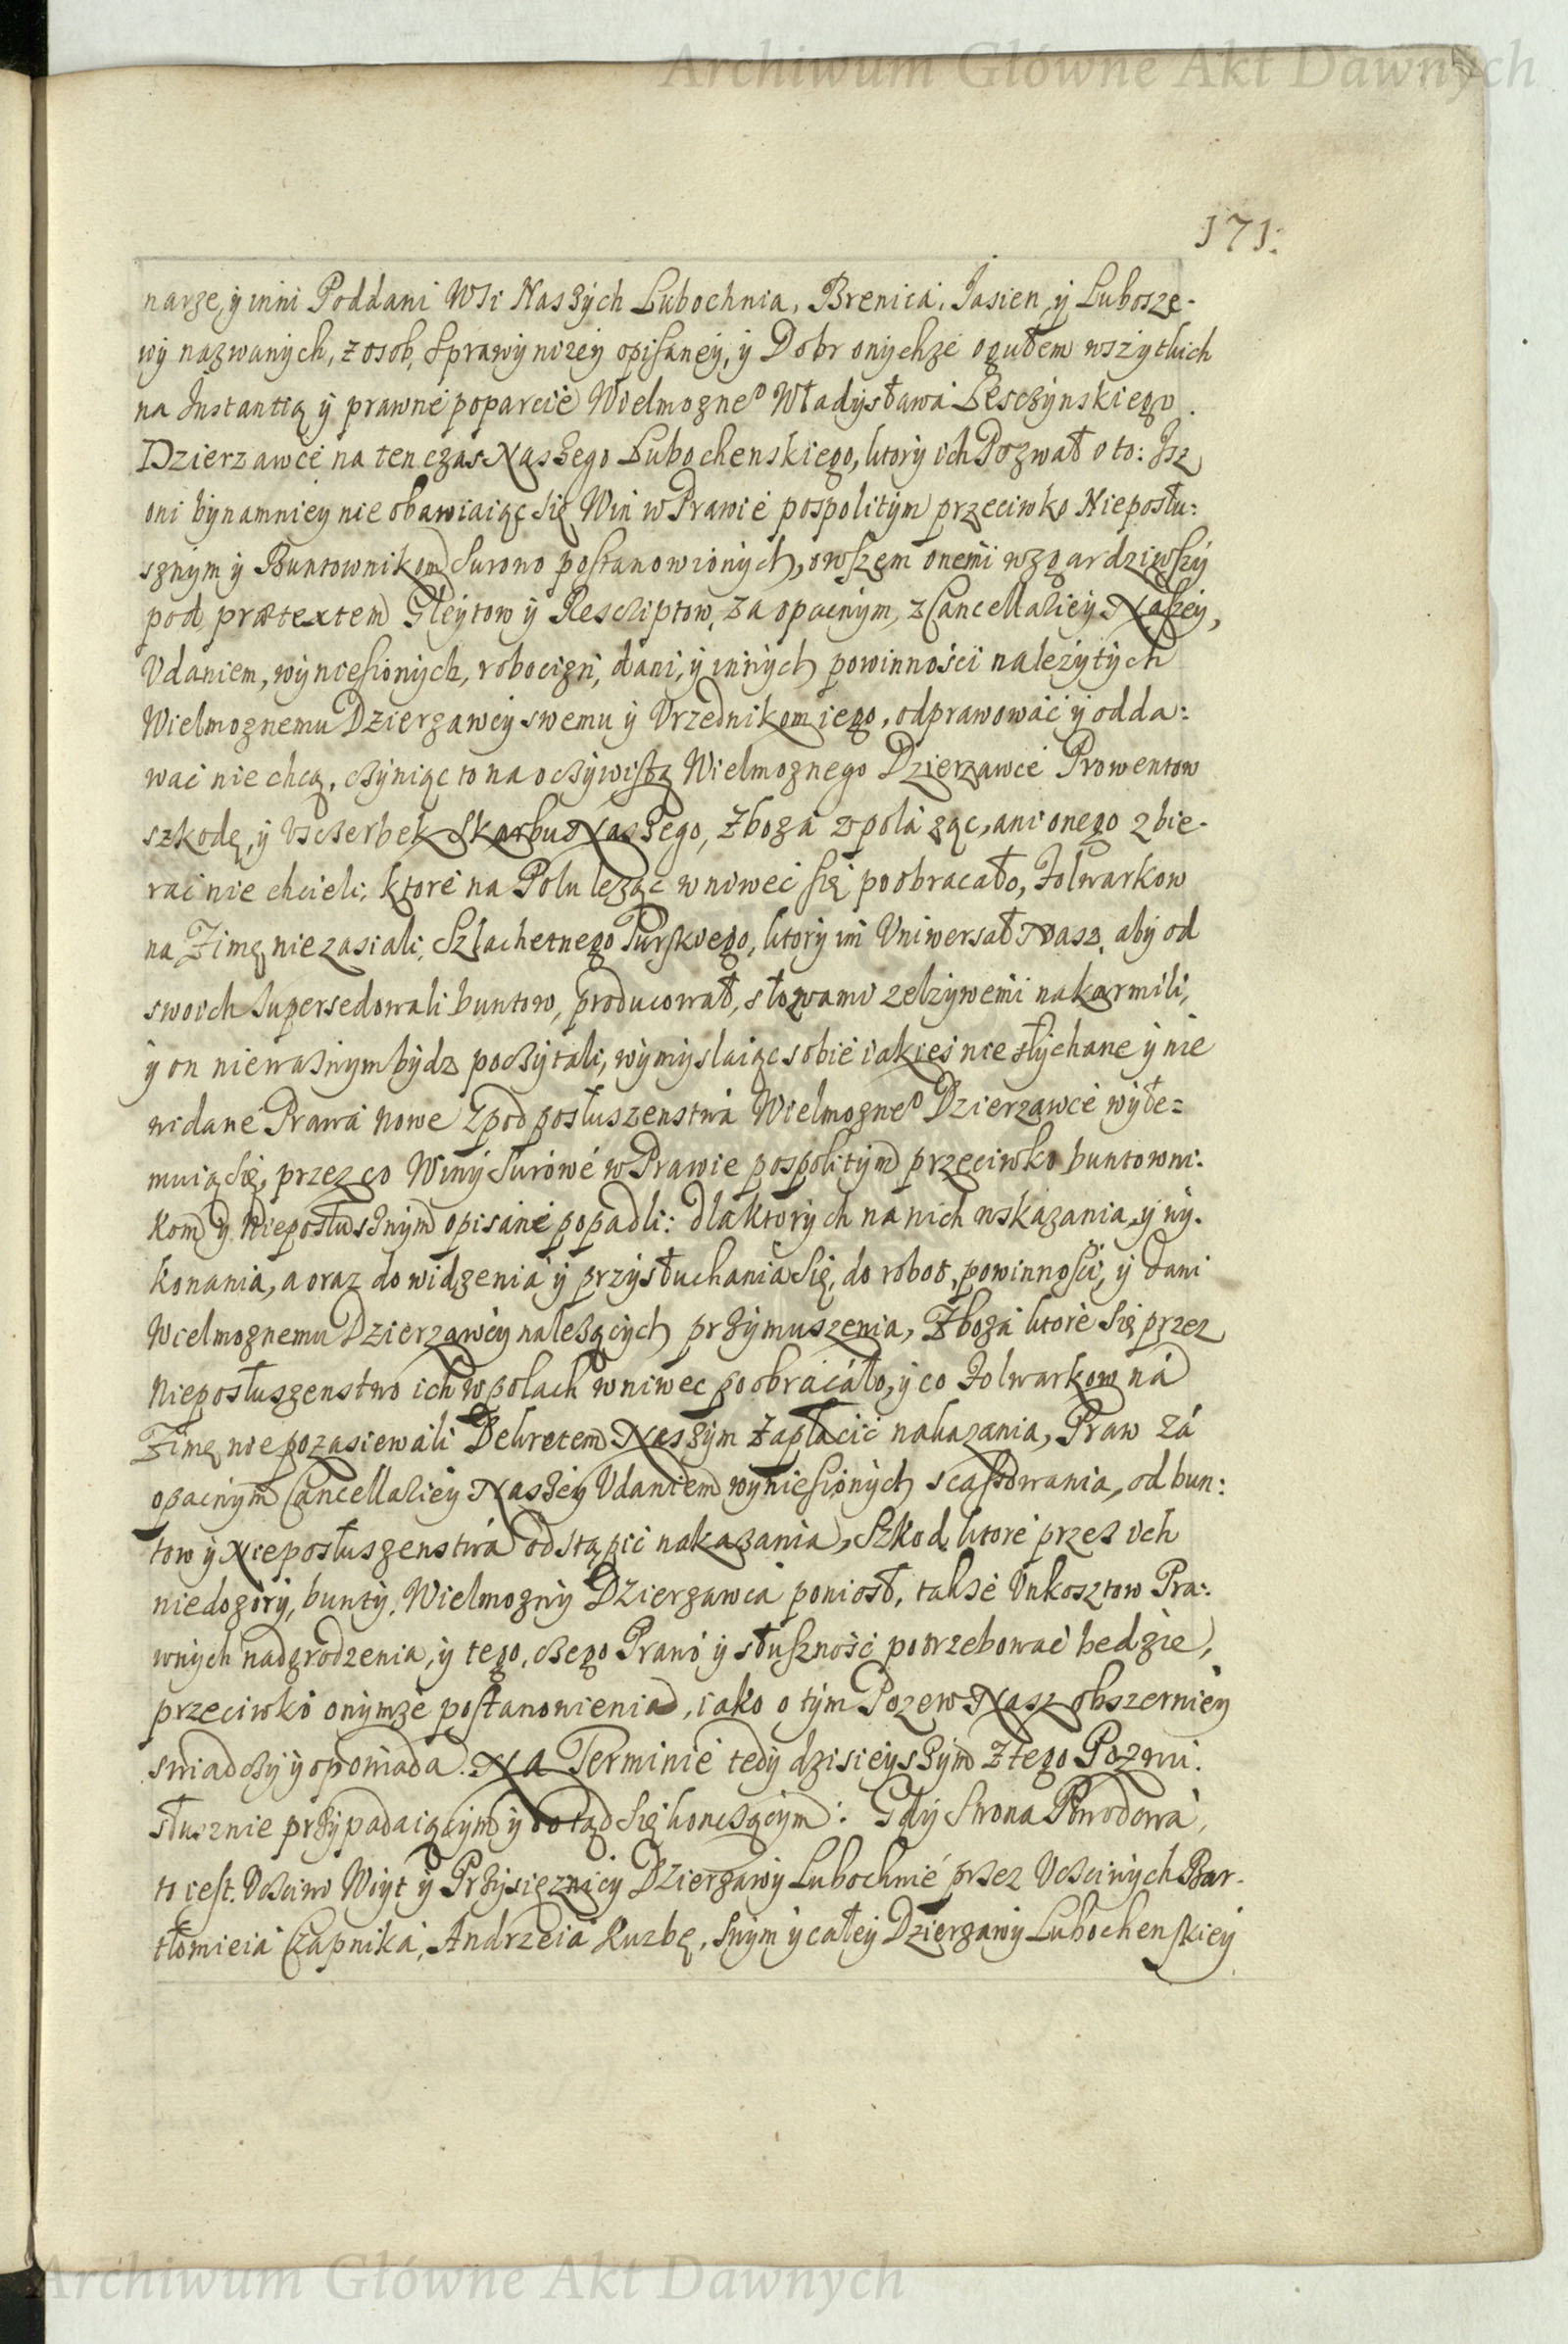 Archiwum Główne Akt Dawnych
171:
narze, ÿ inni Poddani Wsi Naszÿch Lubochnia, Brenica, Jasien, ÿ Lubosze-
wÿ nazwanÿch, z osob, sprawÿ nizeÿ opisaneÿ, ÿ Dobr onÿchze ogułem wszÿtkich
na Instantią ÿ prawne poparcie Wielmozne⁰ Władÿsława Lesczÿnskiego
Dzierzawce na ten czas Naszego Lubochenskiego, ktorÿ ich Pozwał o to: Isz
oni bÿnamnieÿ nie obawiaiąc się Win w Prawie pospolitÿm przeciwko Nieposłu:
sznÿm ÿ Buntownikom surowo postanowionÿch, owszem onemi wzgardziwszÿ
pod prætextem Gleÿtow ÿ Rescriptow, za opacnÿm, z Cancellarieÿ Naszeÿ,
Vdaniem, wÿniesionÿch, robocizn, dani, ÿ innÿch powinności należÿtÿch
Wielmoznemu Dzierzawcÿ swemu ÿ Vrzednikom iego, odprawować ÿ odda:
wać nie chcą, czÿniąc to na oczÿwistą Wielmoznego Dzierzawce Prowentow
szkodę, ÿ Vsczerbek Skarbu Naszego, Zboza z pola ząc, ani onego zbie-
rać nie chcieli, ktore na Polu leząc w niwec się poobracało, Folwarkow
na Zimę nie zasiali, Szlachetnego Turskiego, ktorÿ im Vniwersał Nasz, abÿ od
swoich supersedowali buntow, producował, słowami zelzÿwemi nakarmili,
ÿ on niewaznÿm bÿdz poczÿtali, wÿmÿslaiąc sobie iakies nie słÿchane ÿ nie
widane Prawa nowe z pod posłuszenstwa Wielmozne⁰ Dzierzawce wÿłe=
muią się, przez co Winÿ surowe w Prawie pospolitÿm przeciwko buntowni:
kom ÿ Nieposłusznÿm opisane popadli: dla ktorÿch na nich wskazania, ÿ wÿ-
konania, a oraz do widzenia ÿ przÿsłuchania się, do robot, powinności, ÿ dani
Wielmoznemu Dzierzawcÿ nalezącÿch przÿmuszenia, Zboza ktore się przez
Nieposłuszenstwo ich w polach w niwec poobracało, ÿ co Folwarkow na
Zimę nie pozasiewali Dekretem Naszÿm zapłacić nakazania, Praw za
opacnÿm Cancellarieÿ Naszeÿ Vdaniem wÿniesionÿch scassowania, od bun:
tow ÿ Nieposłuszenstwa odstąpić nakazania, Szkod, ktore przez ich
niedozorÿ, buntÿ, Wielmoznÿ Dzierzawca poniosł, takze Vnkosztow Pra:
wnÿch nadgrodzenia, ÿ tego, czego Prawo ÿ słuszność potrzebować bedzie,
przeciwko onÿmze postanowienia, iako o tÿm Pozew Nasz obszernieÿ
swiadczÿ ÿ opowiada. Na Terminie tedÿ dzisieÿszÿm z tego Pozwu
słusznie przÿpadaiącÿm ÿ dotąd się konczącÿm: Gdÿ Strona Powodowa,
to iest. Vcziwi Woÿt ÿ Przÿsięznicÿ Dzierzawÿ Lubochnie przez Vczciwÿch Bar-
tłomieia Czapnika, Andrzeia Kuzbę, swÿm ÿ całeÿ Dzierzawÿ Lubochenskieÿ
Archiwum Główne Akt Dawnych